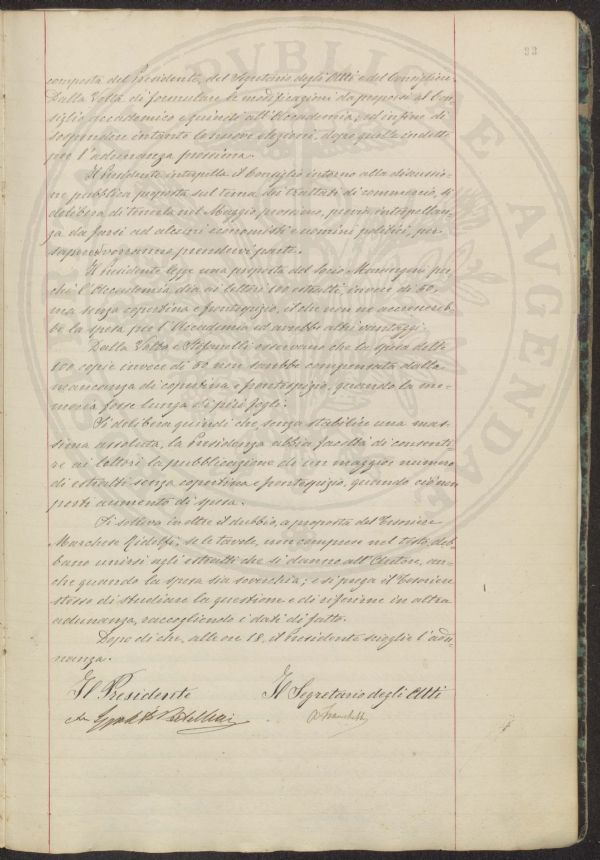 33
composta del Presidente, del Segretario degli Atti e del Consigliere
Dalla Volta di formulare le modificazioni da proporsi al Con-
siglio accademico e quindi all'Accademia; ed infine di
sospendere intanto le nuove elezioni, dopo quelle indette
per l'adunanza prossima.
Il Presidente interpella il Consiglio intorno alla discussio-
ne pubblica proposta sul tema dei trattati di commercio, si
delibera di tenerla nel Maggio prossimo, previa interpellan-
za da farsi ad alcuni economisti e uomini politici, per
sapere se vorranno prendervi parte.
Il Presidente legge una proposta del Socio per-
chè l'Accademia dia ai lettori 100 estratti, invece di 50,
ma senza copertina e frontespizio, il che non ne accrescereb-
be la spesa per l'Accademia ed avrebbe altri vantaggi.
Dalla Volta e Stefanelli osservano che la spesa delle
100 copie invece di 50 non sarebbe compensata dalla
mancanza di copertina e frontespizio, quando la me-
moria fosse lunga di più fogli.
Si delibera quindi che, senza stabilire una mas-
sima assoluta, la Presidenza abbia facoltà di consenti-
re ai lettori la pubblicazione di un maggior numero
di estratti senza copertina e frontespizio, quando ciò non
porti aumento di spesa.
Si solleva inoltre il dubbio, a proposta del Tesoriere
Marchese Ridolfi, se le tavole, non comprese nel testo, deb-
bano unirsi agli estratti che si danno all'Autore, an-
che quando la spesa sia soverchia; e si prega il Tesoriere
stesso di studiare la questione e di riferirne in altra
adunanza, raccogliendo i dati di fatto.
Dopo di che, alle ore 18, il Presidente scioglie l'adu-
nanza.
Il Presidente Il Segretario degli Atti
A Franchetti
PUBLICAE AUGENDAE